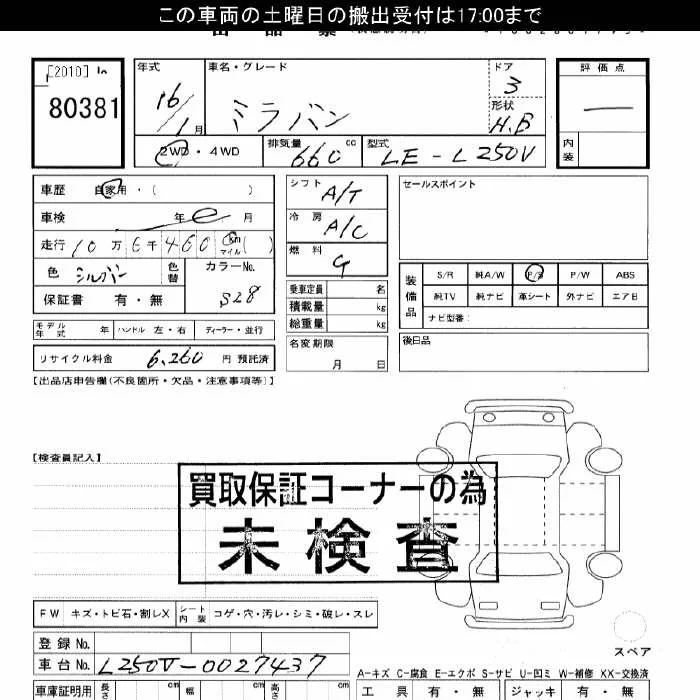 この車両の土曜日の搬出受付は17:00まで
[2010]
80381
年式
16/1月
車名・グレード
ミラバン
ドア
3
形状
H.B
評価点
内装
2WD・4WD
排気量
660cc
型式
LE-L250V
車歴 自家用・( )
車検 年 月
走行 10万6千460km マイル( )
色 シルバー 色替
カラーNo.
S28
保証書 有・無
シフト
A/T
冷房
A/C
燃料
G
乗車定員 名
積載量 kg
総重量 kg
セールスポイント
装備品
S/R 純A/W P/S P/W ABS
純TV 純ナビ 革シート 外ナビ エアB
ナビ型番:
モデル年式 年 ハンドル 左・右 ディーラー・並行
名変期限
月 日
後日品
リサイクル料金 6,260 円 預託済
【出品店申告欄(不良箇所・欠品・注意事項等)】
【検査員記入】
買取保証コーナーの為
未検査
FW キズ・トビ石・割レX シート内装 コゲ・穴・汚レ・シミ・破レ・スレ
スペア
登録No.
車台No. L250V-0027437
A-キズ C-腐食 E-エクボ S-サビ U-凹ミ W-補修 XX-交換済
車庫証明用 長さ cm 幅 cm 高さ cm
工具 有・無 ジャッキ 有・無